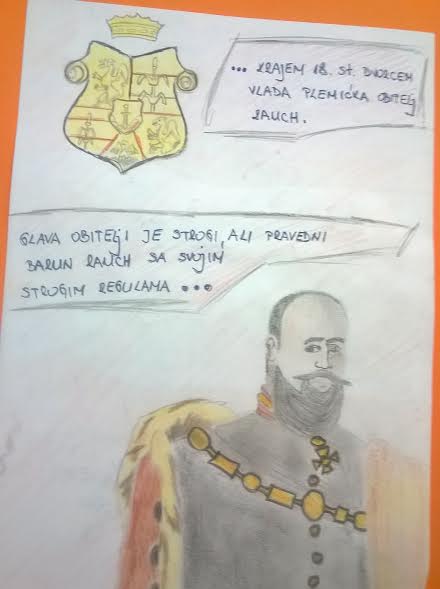 ... KRAJEM 18. ST. DVORCEM
VLADA PLEMIĆKA OBITELJ
RAUCH.
GLAVA OBITELJI JE STROGI, ALI PRAVEDNI
BARUN RAUCH SA SVOJIM
STROGIM REGULAMA ...